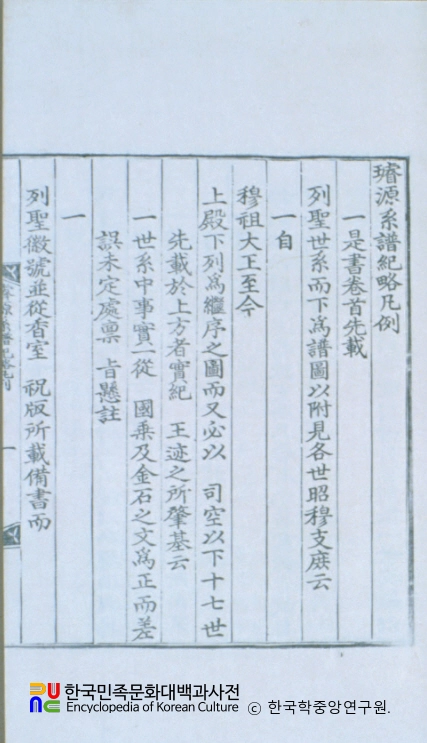 璿源系譜紀略凡例
一是書卷首先載
列聖世系而下爲譜圖以附見各世昭穆支庶云
一自
穆祖大王至今
上殿下列爲繼序之圖而又必以 司空以下十七世
先載於上方者實紀 王迹之所肇基云
一世系中事實一從 國乘及金石之文爲正而差
誤未定處稟 旨懸註
一
列聖徽號並從香室 祝版所載備書而
一
한국민족문화대백과사전
Encyclopedia of Korean Culture
© 한국학중앙연구원.